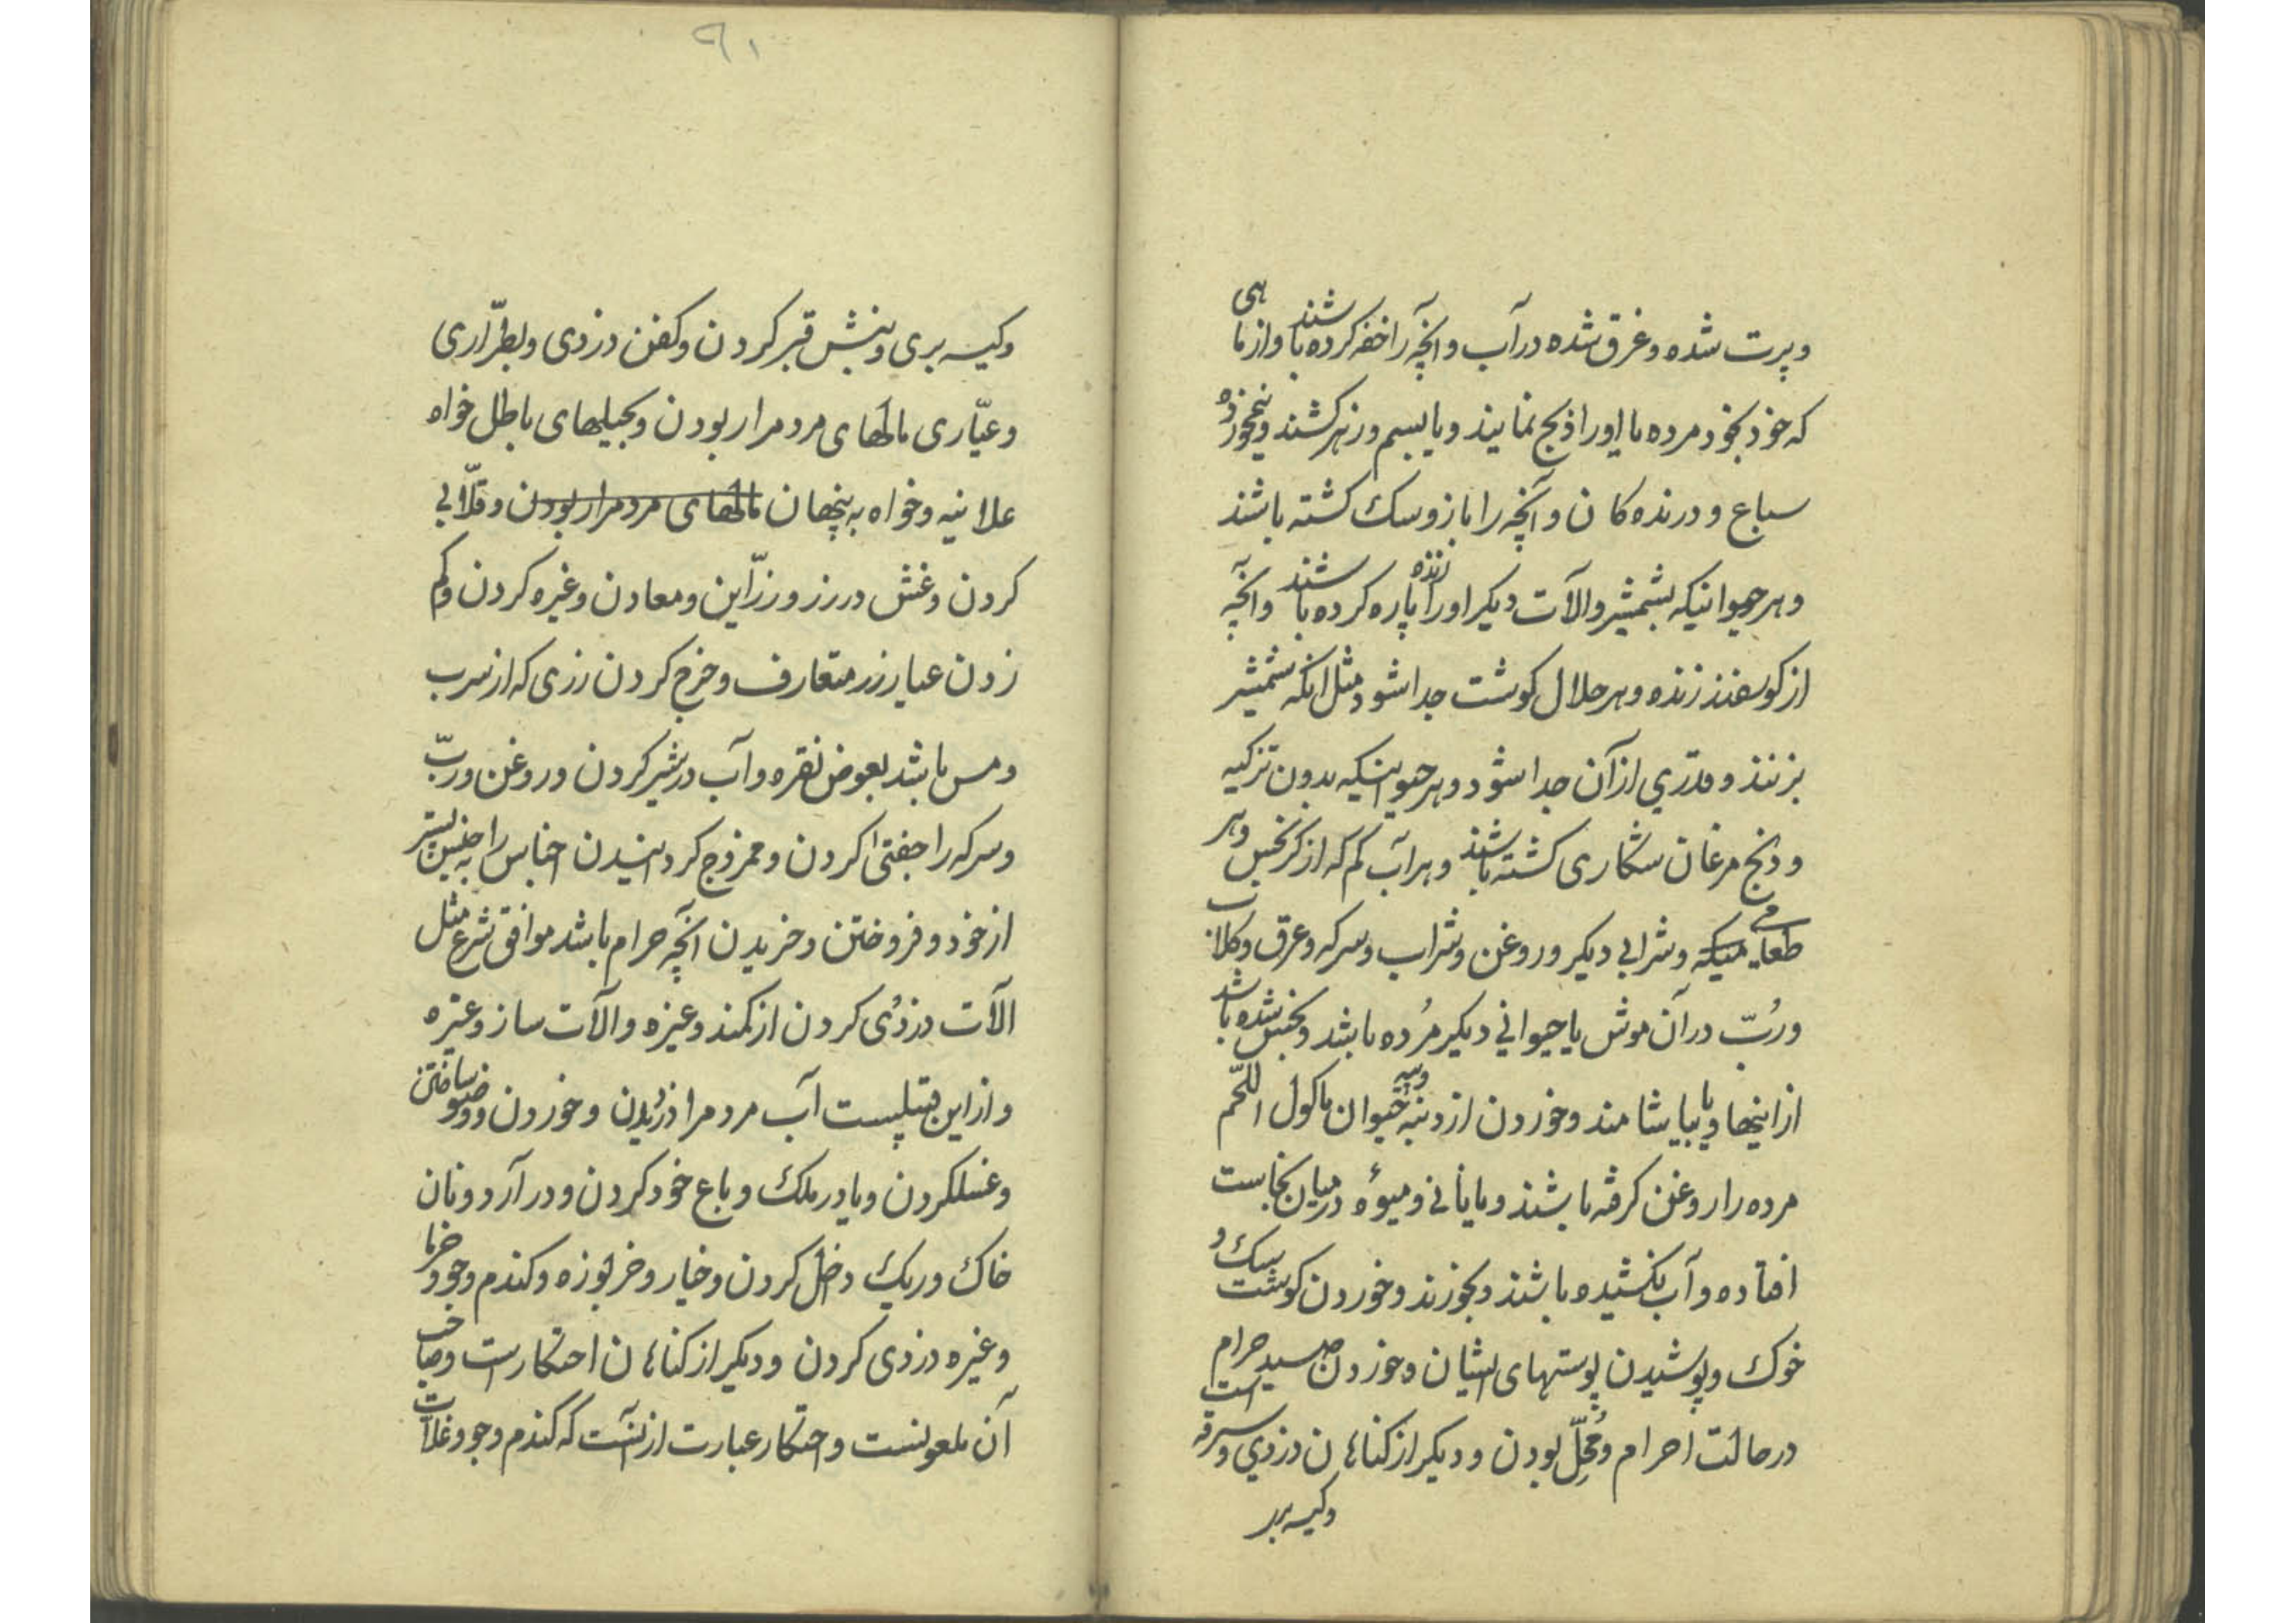 وپرت شده وغرق شده درآب وانچه را خفه کرده باشند وازماهی
که خود بخود مرده یا اورا ذبح نمایند ویا بسم وزهر کشند ونیمخورده
سباع ودرنده کان وآنچه را باز وسک کشته باشند
وهر حیوانیکه بشمشیر والآت دیکر اورا زنده پاره کرده باشند وآنچه
از کوسفند زنده وهر حلال کوشت جدا شود مثل انکه شمشیر
بزنند وقدری ازآن جدا شود وهر حیوانیکه بدون تزکیه
وذبح مرغان شکاری کشته باشند وهر آب کم که از کر نجس وهر
طعامی میکه وشرابی دیکر وروغن وشراب وسرکه وعرق وکلاب
وربّ درآن موش یا حیوانی دیکر مُرده باشد ونجس شده باشد
ازاینها ویا بیاشامند وخوردن از دنبه وپیه حیوان ماکول اللّحم
مرده را روغن کرفته باشند ویا نانی ومیوهٔ درمیان نجاست
افتاده وآب کشیده باشند وبخورند وخوردن کوشت سک و
خوک وپوشیدن پوستهای ایشان وخوردن صید حرام است
درحالت احرام ومُحِلّ بودن ودیکر از کناهان دزدی وسرقه
وکیسه بر
۹۱
وکیسه بری ونبش قبر کردن وکفن دزدی وبطرّاری
وعیّاری مالهای مردمرا ربودن وبحیلهای باطل خواه
علانیه وخواه به پنهان مالهای مردمرا ربودن وقلّابی
کردن وغش درزر وزرّاین ومعادن وغیره کردن وکم
زدن عیار زر متعارف وخرج کردن زری که از سرب
ومس باشد بعوض نقره وآب درشیر کردن وروغن وربّ
وسرکه را جفتی کردن وممزوج کردانیدن اجناس را به جنس پستتر
ازخود وفروختن وخریدن آنچه حرام باشد موافق شرع مثل
الآت دزدی کردن از کمند وغیره والآت ساز وغیره
وازاین قبیلست آب مردمرا دزدیدن وخوردن ووضو ساختن
وغسلکردن ویا درملک وباغ خود کردن ودر آرد ونان
خاک وریک دخل کردن وخیار وخربوزه وکندم وجو وخرما
وغیره دزدی کردن ودیکر از کناهان احتکارست وصاحب
آن ملعونست واحتکار عبارت ازآنست که کندم وجو وغلّات